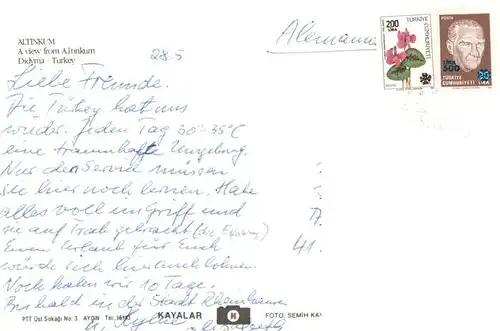 ALTINKUM
A view from Altınkum
Didyma - Turkey
28.5
Alemania
200
LIRA
TÜRKİYE
CUMHURİYETİ
POSTA
LİRA
500
20
TÜRKİYE
CUMHURİYETİ LİRA
Liebe Freunde.
Die Türkey hat uns
wieder. Jeden Tag 30°-35°C
eine traumhafte Umgebung.
Nur den Service müssen
sie hier noch lernen. Habe
alles voll im Griff und
sie auf Trab gebracht
7
Einen Urlaub für Euch
41.
würde sich hier auch lohnen.
Noch haben wir 10 Tage.
Bis bald in der Stadt Rheinhausen
PTT Üst Sokağı No: 3 AYDIN Tel: 16193
KAYALAR
FOTO. SEMİH KAY